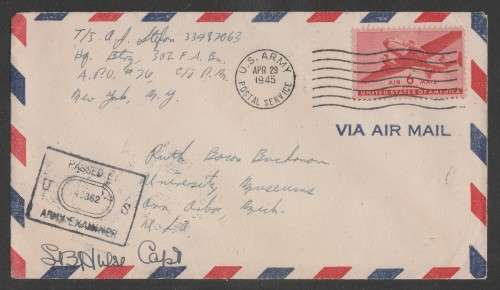 T/5 A.J. Stefon 33987063
Hq. Btry, 302 F.A. Bn.
A.P.O. #76, c/o P.M.
New York, N.Y.
U.S. ARMY
APR 29
1945
POSTAL SERVICE
AIR 6¢ MAIL
UNITED STATES OF AMERICA
VIA AIR MAIL
Ruth Bacon Buchanan
University Museums
Ann Arbor, Mich.
U.S.A.
PASSED BY
U S
ARMY EXAMINER
Capt